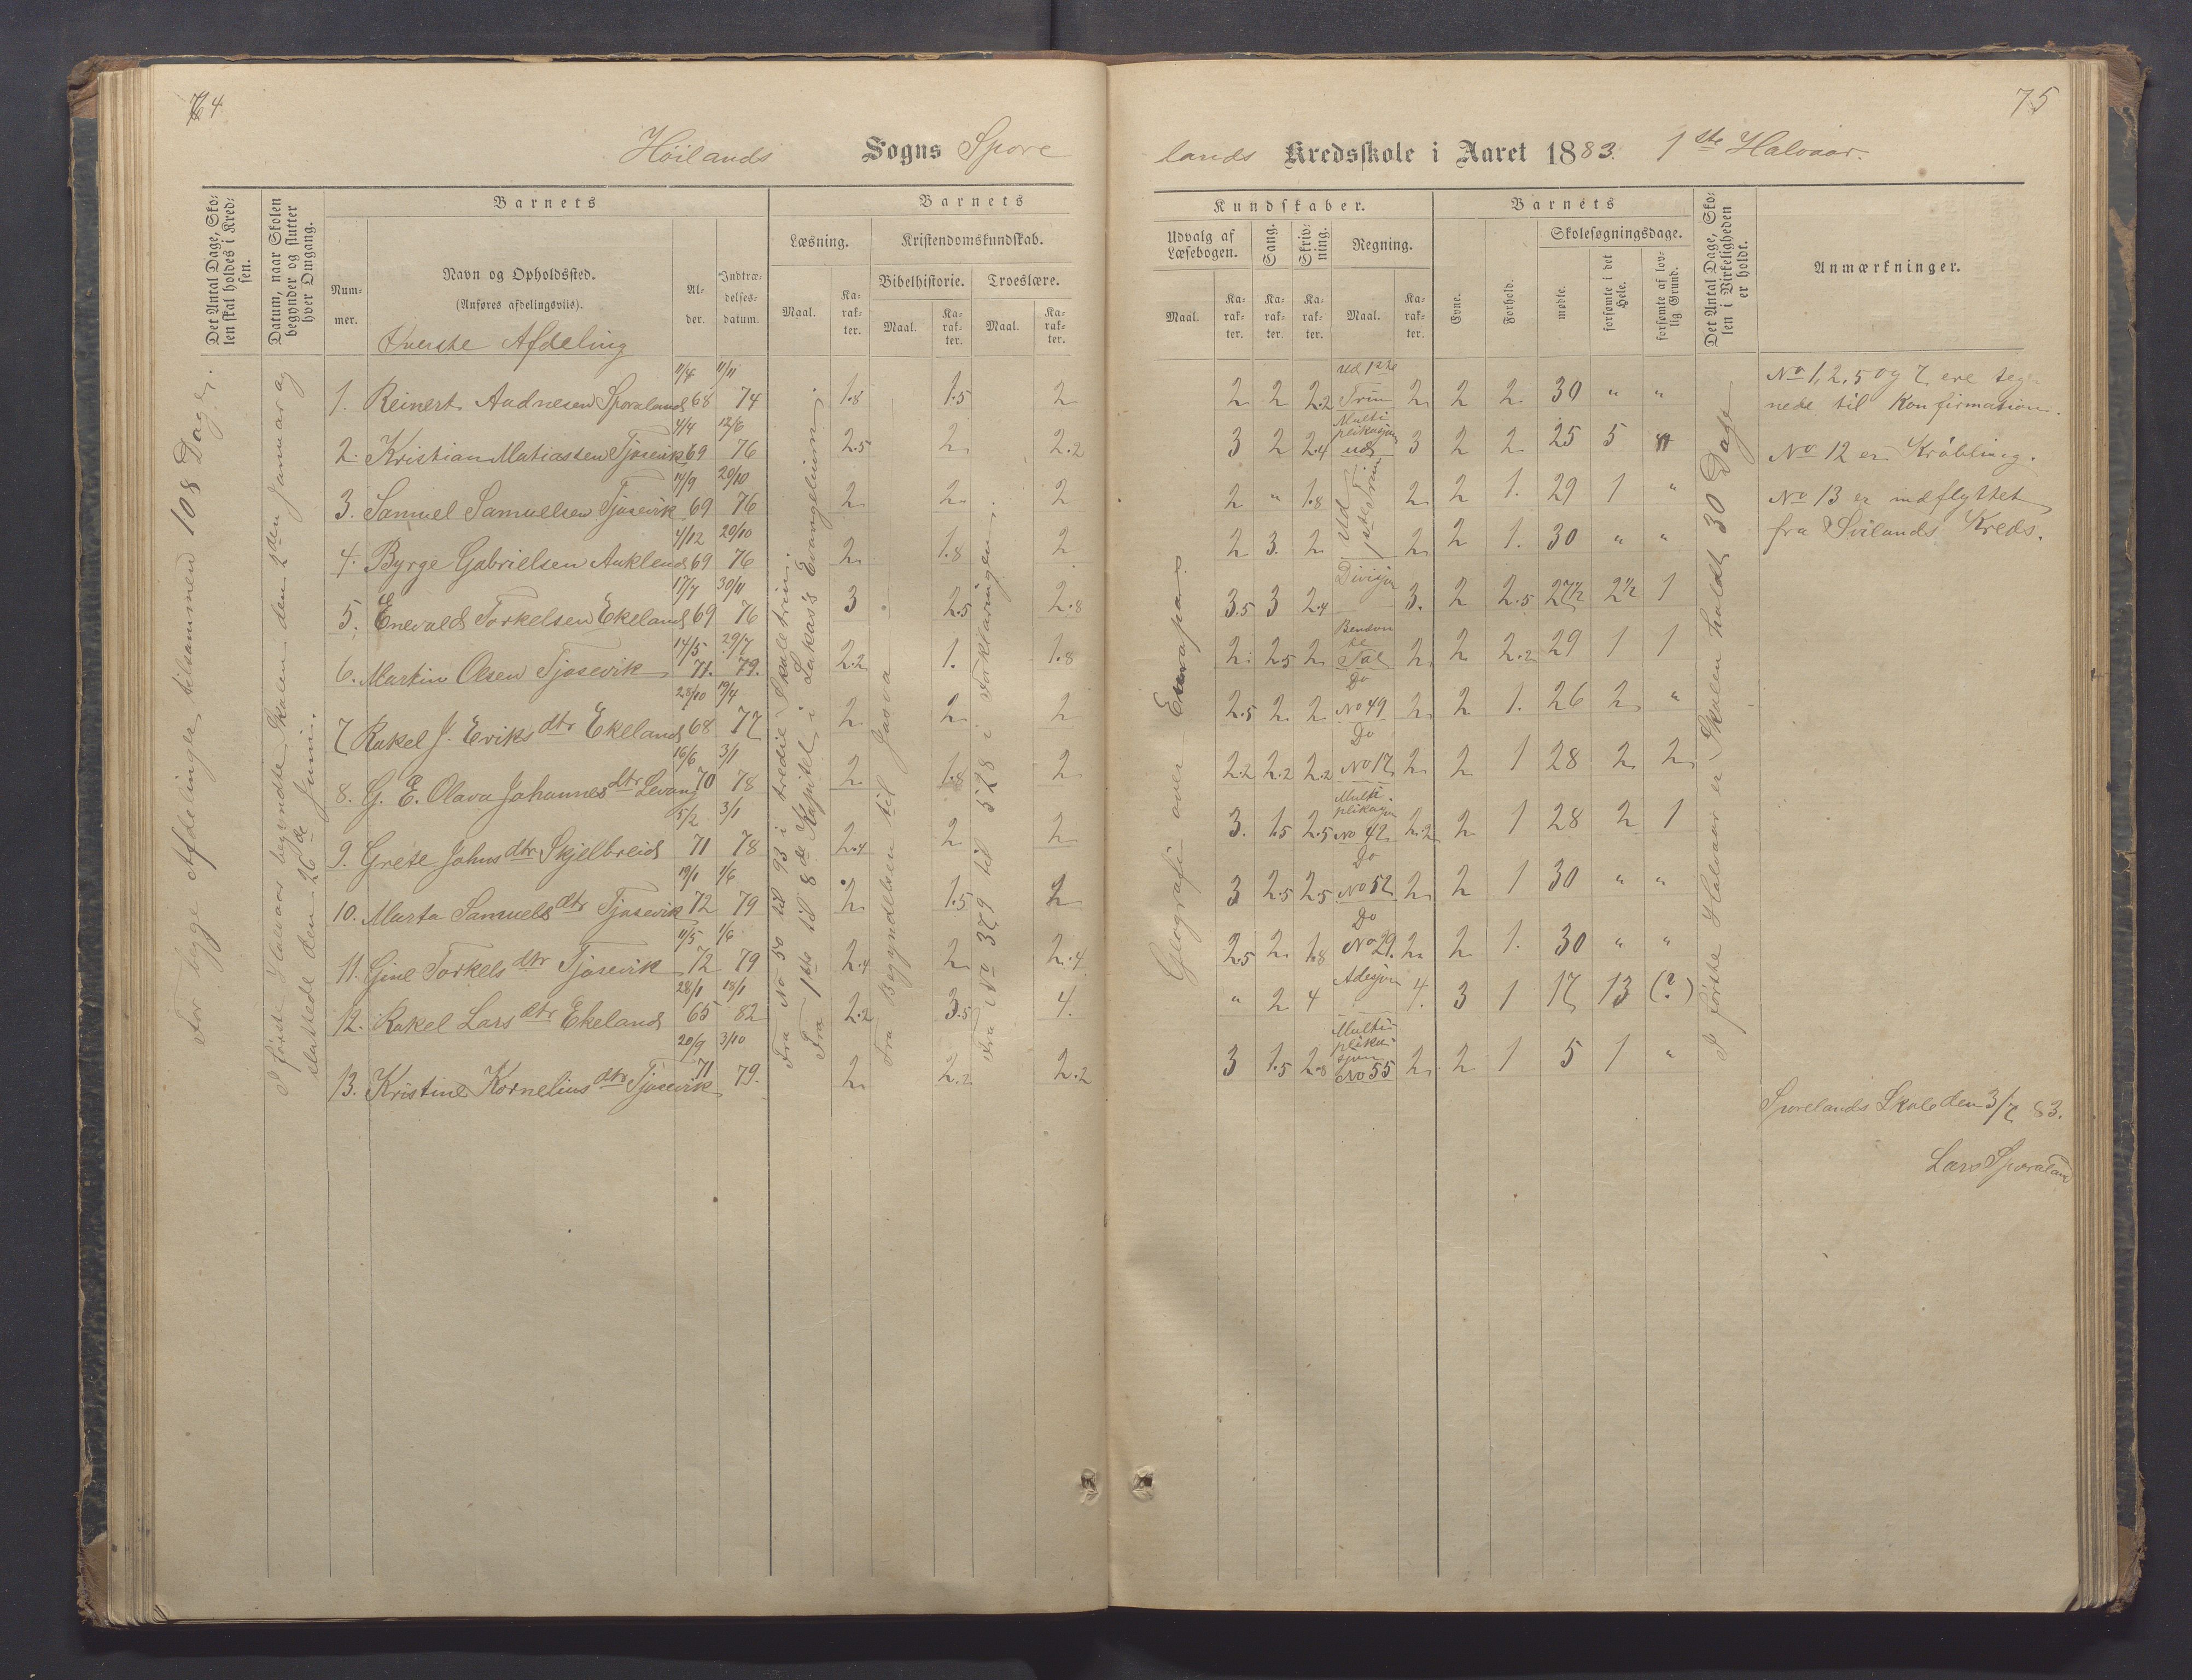 74
75
Höilands Sogns Spore
lands Kredsskole i Aaret 1883. 1ste Halvaar.
Det Antal Dage, Sko-
len skal holdes i Kred-
sen.
Datum, naar Skolen
begynder og slutter
hver Omgang.
Barnets
Num-
mer.
Navn og Opholdssted.
(Anføres afdelingsviis).
Øverste Afdeling
Al-
der.
Indtræ-
delses-
datum.
Barnets
Læsning.
Kristendomskundskab.
Bibelhistorie. Troeslære.
Maal. Ka-
rak-
ter. Maal. Ka-
rak-
ter. Maal. Ka-
rak-
ter.
Kundskaber.
Udvalg af
Læsebogen.
Sang.
Skriv-
ning.
Regning.
Maal. Ka-
rak-
ter. Ka-
rak-
ter. Ka-
rak-
ter. Maal. Ka-
rak-
ter.
Barnets
Evne.
Forhold.
Skolesøgningsdage.
mødte.
forsømte i det
Hele.
forsømte af lov-
lig Grund.
Det Antal Dage, Sko-
len i Virkeligheden
er holdt.
Anmærkninger.
For begge Afdelinger tilsammen 108 Dage.
I første Halvaar begyndte Skolen den 2den Januar og
sluttede den 26de Juni.
Fra No 50 til 93 i tredie Skoletrin.
Fra 1ste til 8de Kapitel i Lukas's Evangelium.
Fra Begyndelsen til Josva
Fra No 379 til 528 i Forklaringen.
Geografi over Europa.
I første Halvaar er Skolen holdt 30 Dage
1. Reinert Aadnesen Sporaland 11/4 68 11/11 74 1.8 1.5 2 2 2 2.2 ved 1ste Trin 2 2 2 30 " "
2. Kristian Matiassen Tjosevik 4/4 69 12/6 76 2.5 2 2.2 3 2 2.4 Multiplikasjon ud 3 2 2 25 5
3. Samuel Samuelsen Tjosevik 14/9 69 20/10 76 2 2 2 2 " 1.8 Ud 1ste Trin 2 2 1. 29 1 "
4. Byrge Gabrielsen Auklend 4/12 69 20/10 76 2 1.8 2 2 3. 2 2 2 1. 30 " "
5. Enevald Torkelsen Ekeland 17/7 69 30/11 76 3 2.5 2.8 3.5 3 2.4 Divisjon 3. 2 2.5 27½ 2½ 1
6. Martin Olsen Tjosevik 14/5 71. 29/7 79. 2.2 1. 1.8 2. 2.5 2 Benævnte Tal 2 2 2.2 29 1 1
7 Rakel J. Eriksdtr Ekeland 28/10 68 19/4 77 2 2 2 2.5 2 2 Do No 49 2 2 1. 26 2 "
8. G. E. Olava Johannesdtr Levang 16/6 70 3/1 78 2 1.8 2 2.2 2.2 2.2 Do No 17 2 2 1 28 2 2
9. Grete Johnsdtr Skjelbreid 5/2 71 3/1 78 2.4 2 2 3. 1.5 2.5 Multiplikasjon No 42 2.2 2 1 28 2 1
10. Marta Samuelsdtr Tjosevik 19/1 72 1/6 79 2 1.5 2 3 2.5 2.5 Do No 52 2 2 1 30 " "
11. Gine Torkelsdtr Tjosevik 11/5 72 1/6 79 2.4 2 2.4 2.5 2 1.8 Do No 29. 2 2 1. 30 " "
12. Rakel Larsdtr Ekeland 28/1 65 18/1 82 2.2 3.5 4. " 2 4 Adisjon 4. 3 1 17 13 (?)
13. Kristine Korneliusdtr Tjosevik 20/9 71 3/10 79. 2 2.2 2.2 3 1.5 2.8 Multiplikasjon No 55 2 2 1 5 1 "
No 1, 2, 5 og 7 ere teg-
nede til Konfirmation.
No 12 er Kröbling.
No 13 er indflyttet
fra Svilands Kreds.
Sporelands Skole den 3/7 83.
Lars Sporaland